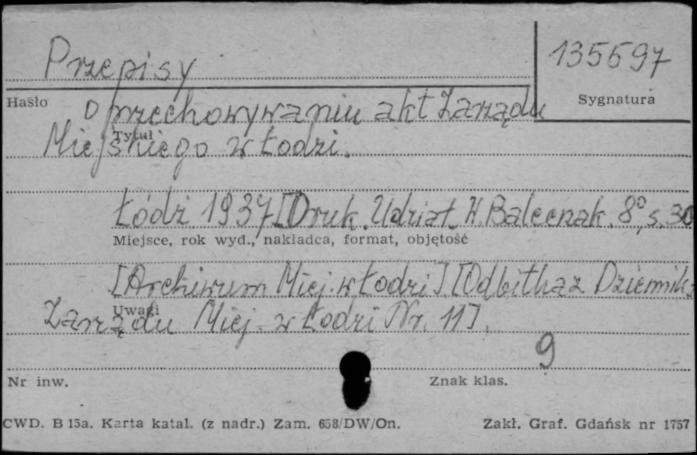 Przepisy
135597
Hasło
Sygnatura
o przechowywaniu akt Zarządu
Tytuł
Miejskiego w Łodzi.
Łódź 1937 [Druk. Udział. W. Balcerzak. 8°, s. 30
Miejsce, rok wyd., nakładca, format, objętość
[Archiwum Miej. w Łodzi] [Odbitka z Dziennik.
Uwagi
Zarządu Miej. w Łodzi Nr. 11].
9
Nr inw.
Znak klas.
CWD. B 15a. Karta katal. (z nadr.) Zam. 658/DW/On.
Zakł. Graf. Gdańsk nr 1757